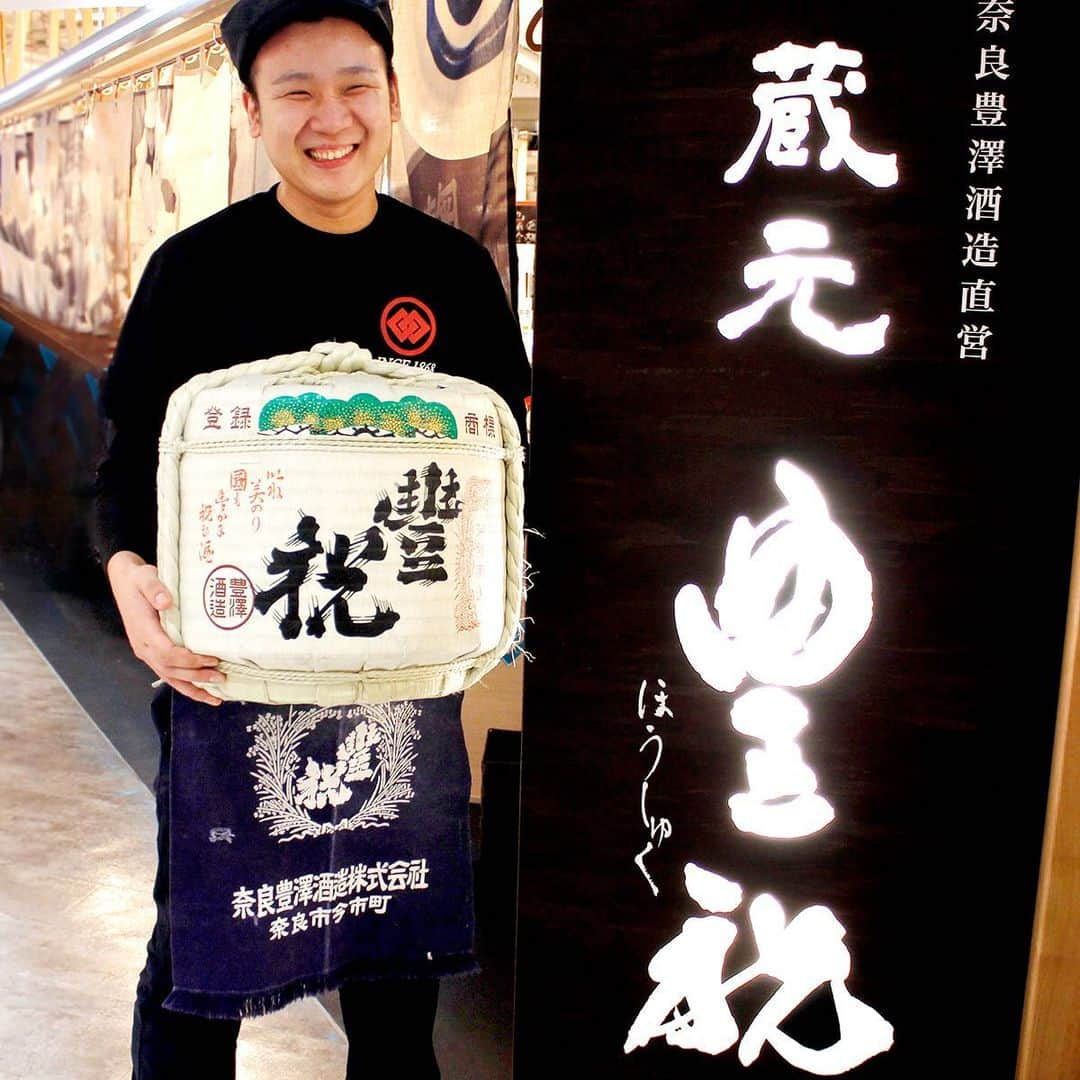 奈良豊澤酒造直営
蔵元
豊祝
ほうしゅく
SINCE 1868
登録
商標
豐祝
國も
豊澤
酒造
豐祝
奈良豊澤酒造株式会社
奈良市今市町